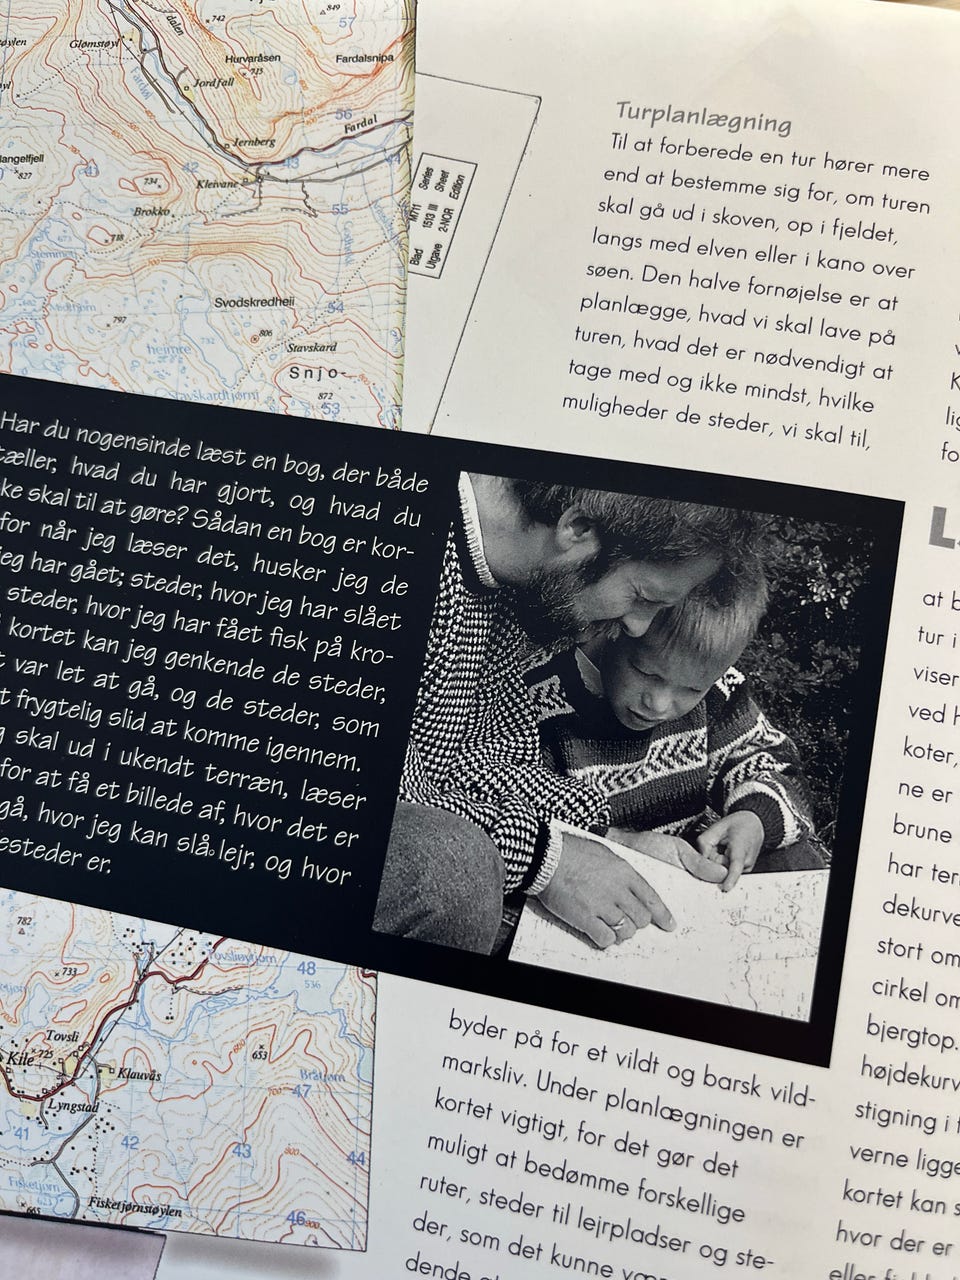 849
742
57
dalen
Glømstøyl
Hurvaråsen
715
Fardalsnipa
Jordfall
56
Fardal
Jernberg
43
44
42
41
827
734
Kleivane
Brokko
55
718
673
Svodskredheii
54
797
732
806
heimre
Stavskard
Snjo-
872
53
Blad M711 Series
1513 III Sheet
Utgave 2-NOR Edition
Turplanlægning
Til at forberede en tur hører mere
end at bestemme sig for, om turen
skal gå ud i skoven, op i fjeldet,
langs med elven eller i kano over
søen. Den halve fornøjelse er at
planlægge, hvad vi skal lave på
turen, hvad det er nødvendigt at
tage med og ikke mindst, hvilke
muligheder de steder, vi skal til,
Har du nogensinde læst en bog, der både
tæller, hvad du har gjort, og hvad du
ke skal til at gøre? Sådan en bog er kor-
for når jeg læser det, husker jeg de
jeg har gået; steder, hvor jeg har slået
steder, hvor jeg har fået fisk på kro-
kortet kan jeg genkende de steder,
t var let at gå, og de steder, som
t frygtelig slid at komme igennem.
g skal ud i ukendt terræn, læser
for at få et billede af, hvor det er
gå, hvor jeg kan slå lejr, og hvor
esteder er.
byder på for et vildt og barsk vild-
marksliv. Under planlægningen er
kortet vigtigt, for det gør det
muligt at bedømme forskellige
ruter, steder til lejrpladser og ste-
der, som det kunne
dende
at
tur i
viser
ved
koter,
ne er
brune
har
dekurve
stort om
cirkel om
bjergtop.
højdekurv
stigning i
verne ligge
kortet kan
hvor der er
eller
782
733
Tovsli
Kile
725
Klauvås
Lyngstad
41
42
43
44
48
536
653
47
46
Fisketjørn
623
Fisketjørnstøylen
665